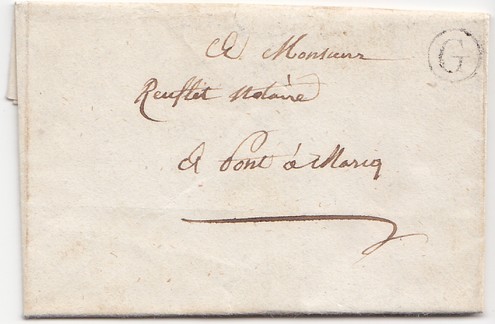 A Monsieur
G
Reuflet notaire
A Pont à Marcq